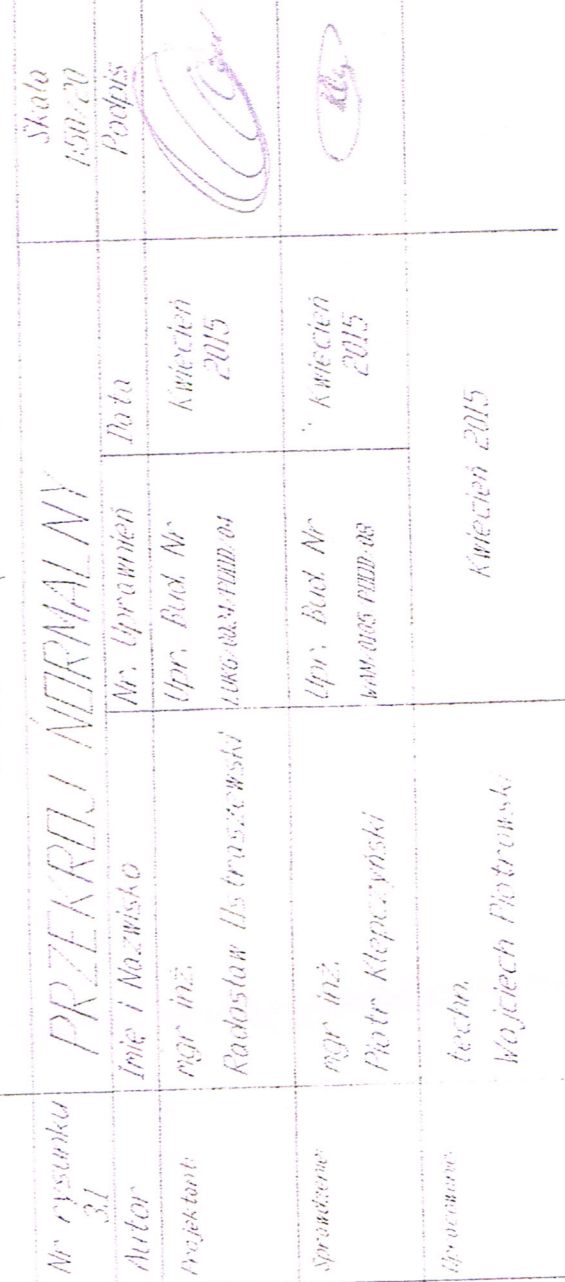 Nr rysunku
3.1
PRZEKRÓJ NORMALNY
Skala
1:50/20
Autor
Imię i Nazwisko
Nr. Uprawnień
Data
Podpis
Projektant:
mgr inż.
Radosław Ustraszewski
Upr. Bud. Nr
Kwiecień
2015
Sprawdzenie:
mgr inż.
Piotr Klepczyński
Upr. Bud. Nr
Kwiecień
2015
Opracowanie:
techn.
Wojciech Piotrowski
Kwiecień 2015